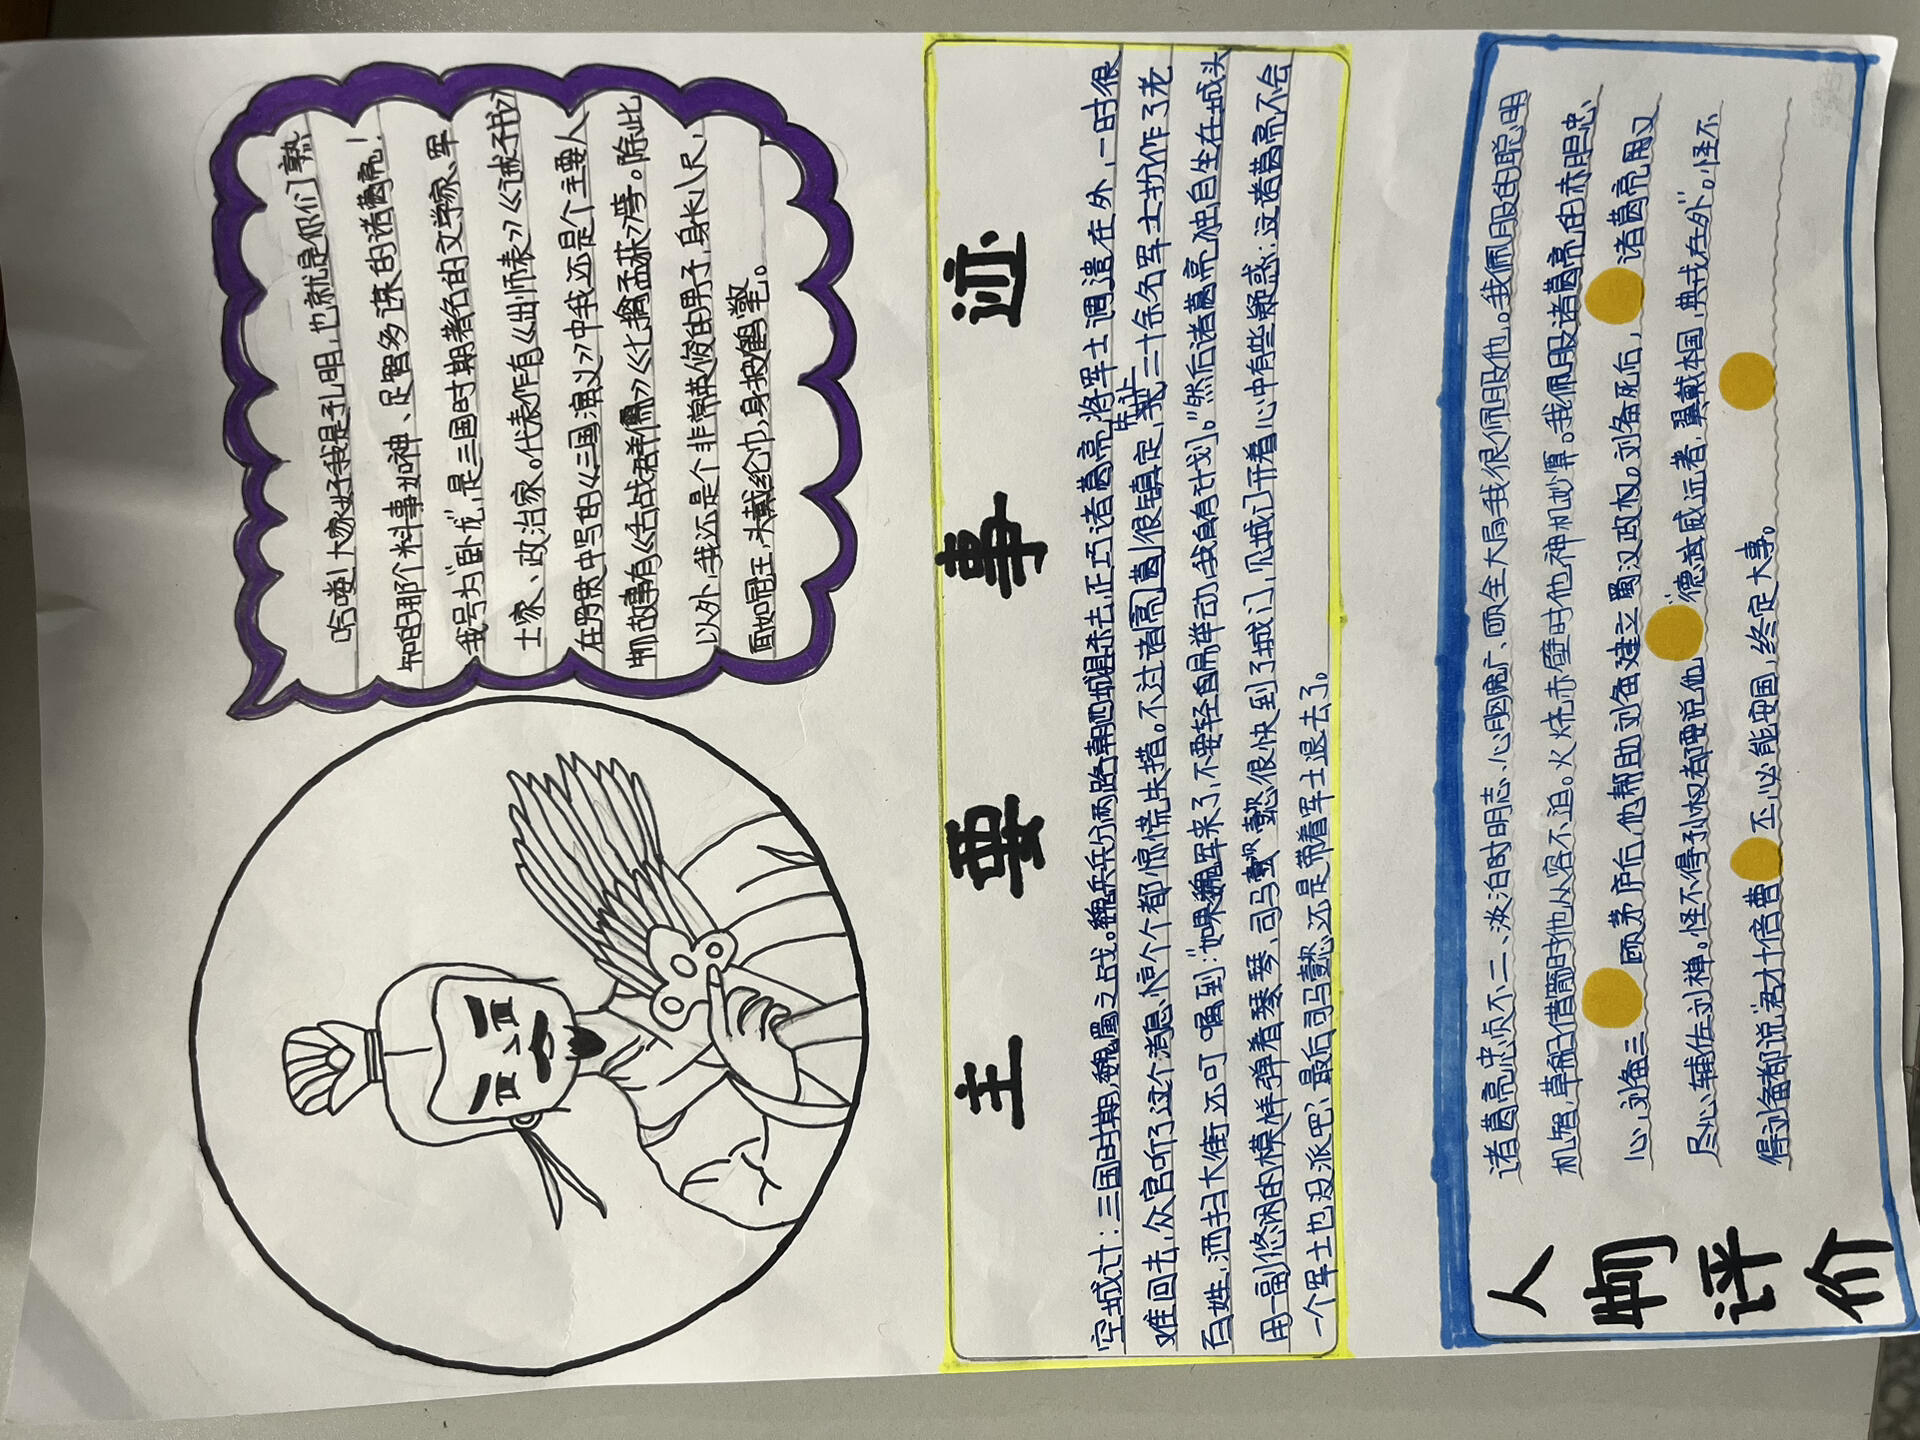 哈喽！大家好我是孔明，也就是你们熟
知的那个料事如神、足智多谋的诸葛亮！
我号为“卧龙”，是三国时期著名的文学家、军
士家、政治家。代表作有《出师表》《诫子书》
在罗贯中写的《三国演义》中我还是个主要人
物故事有《舌战群儒》《七擒孟获》等。除此
以外，我还是个非常英俊的男子，身长八尺，
面如冠玉，头戴纶巾，身披鹤氅。
主要事迹
空城计：三国时期，魏蜀之战。魏兵兵分两路朝
杀去，正巧诸葛亮将军士调遣在外，一时很
难回去，众官听了这个消息个个都惊慌失措。不过诸葛
很镇定，
三十余名军士扮作了老
百姓，洒扫大街还叮嘱到：“如果魏军来了，不要轻自
举动，我自有计划。”然后诸葛亮独自坐在城头
用一副悠闲的模样弹着琴，司马懿很快到了城门，见城门开着心中有些疑惑：这诸葛亮不会
一个军士也没派吧？最后司马懿还是带着军士退去了。
人物评价
诸葛亮忠贞不二、淡泊时明志、心胸宽广、顾全大局我很佩服他。我佩服的聪明
机智，草船借箭时他从容不迫。火烧赤壁时他神机妙算。我佩服诸葛亮的赤胆忠
心，刘备三
顾茅庐后，他帮助刘备建立蜀汉政权。刘备死后，
诸葛亮用又
尽心辅佐刘禅。怪不得孙权都要说他
“德威远者，翼戴本国，典戎在外”。怪不
得刘备都说“君才十倍曹
丕，必能安国，终定大事。